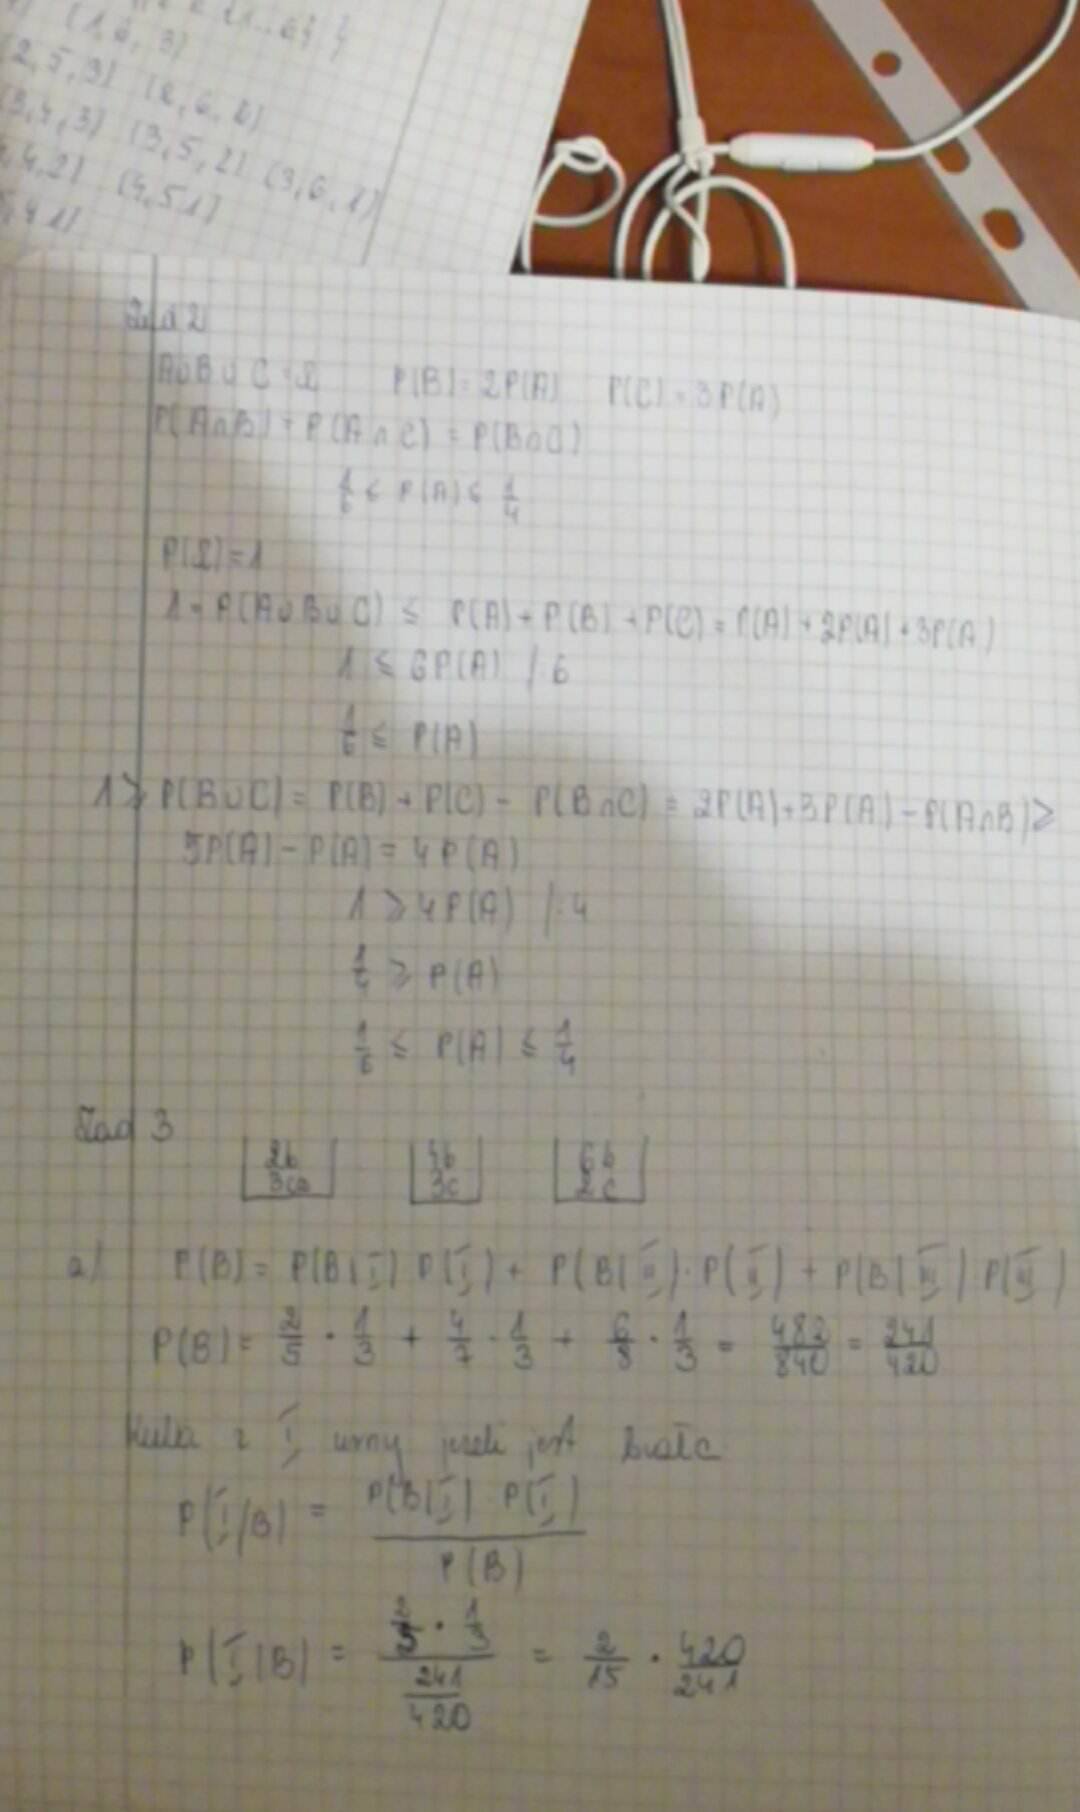 (1,6,3)
2,5,3) (2,6,2)
(3,4,3) (3,5,2) (3,6,1)
4,4,2) (4,5 1)
5,4 1)
Zad 2
A∪B∪C = Ω P(B) = 2P(A) P(C) = 3P(A)
P(A∩B) = P(A∩C) = P(B∩C)
1/6 ≤ P(A) ≤ 1/4
P(Ω) = 1
1 = P(A∪B∪C) ≤ P(A) + P(B) + P(C) = P(A) + 2P(A) + 3P(A)
1 ≤ 6P(A) / 6
1/6 ≤ P(A)
1 ≥ P(B∪C) = P(B) + P(C) - P(B∩C) = 2P(A) + 3P(A) - P(A∩B) ≥
5P(A) - P(A) = 4P(A)
1 ≥ 4P(A) /:4
1/4 ≥ P(A)
1/6 ≤ P(A) ≤ 1/4
Zad 3
2b 4b 6b
3c 3c 2c
a) P(B) = P(B|I) P(I) + P(B|II) · P(II) + P(B|III) · P(III)
P(B) = 2/5 · 1/3 + 4/7 · 1/3 + 6/8 · 1/3 = 482/840 = 241/420
Kula z I urny jeżeli jest biała
P(I/B) = P(B|I) · P(I) / P(B)
P(I|B) = 2/5 · 1/3 / 241/420 = 2/15 · 420/241